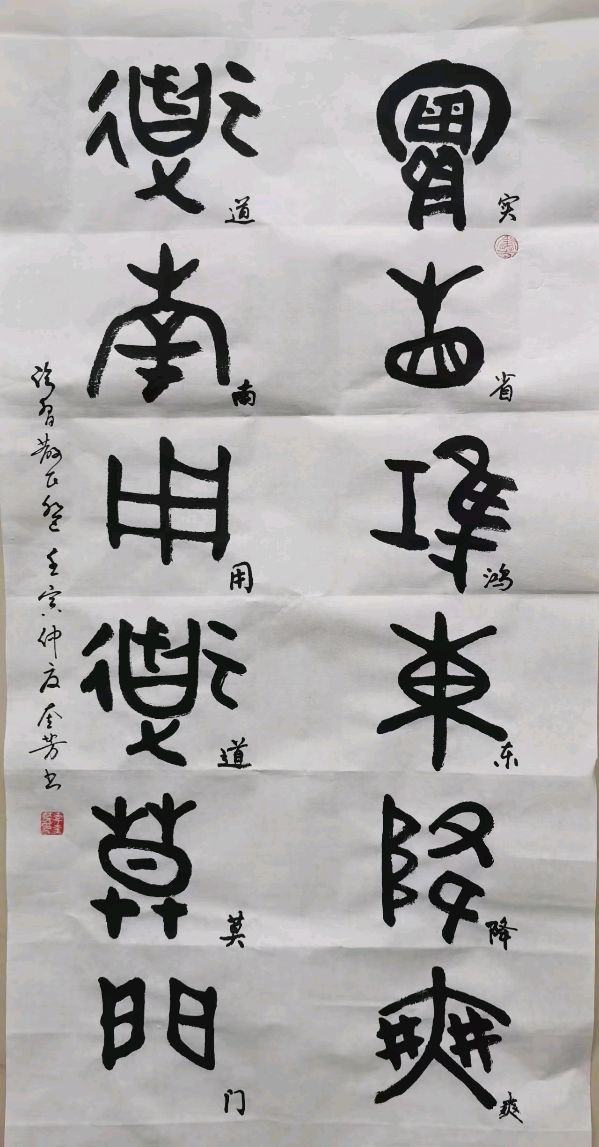 實省鴻東降爽
实省鸿东降爽
道南用道莫門
道南用道莫门
临習散氏盤 壬寅仲夏奎芳书